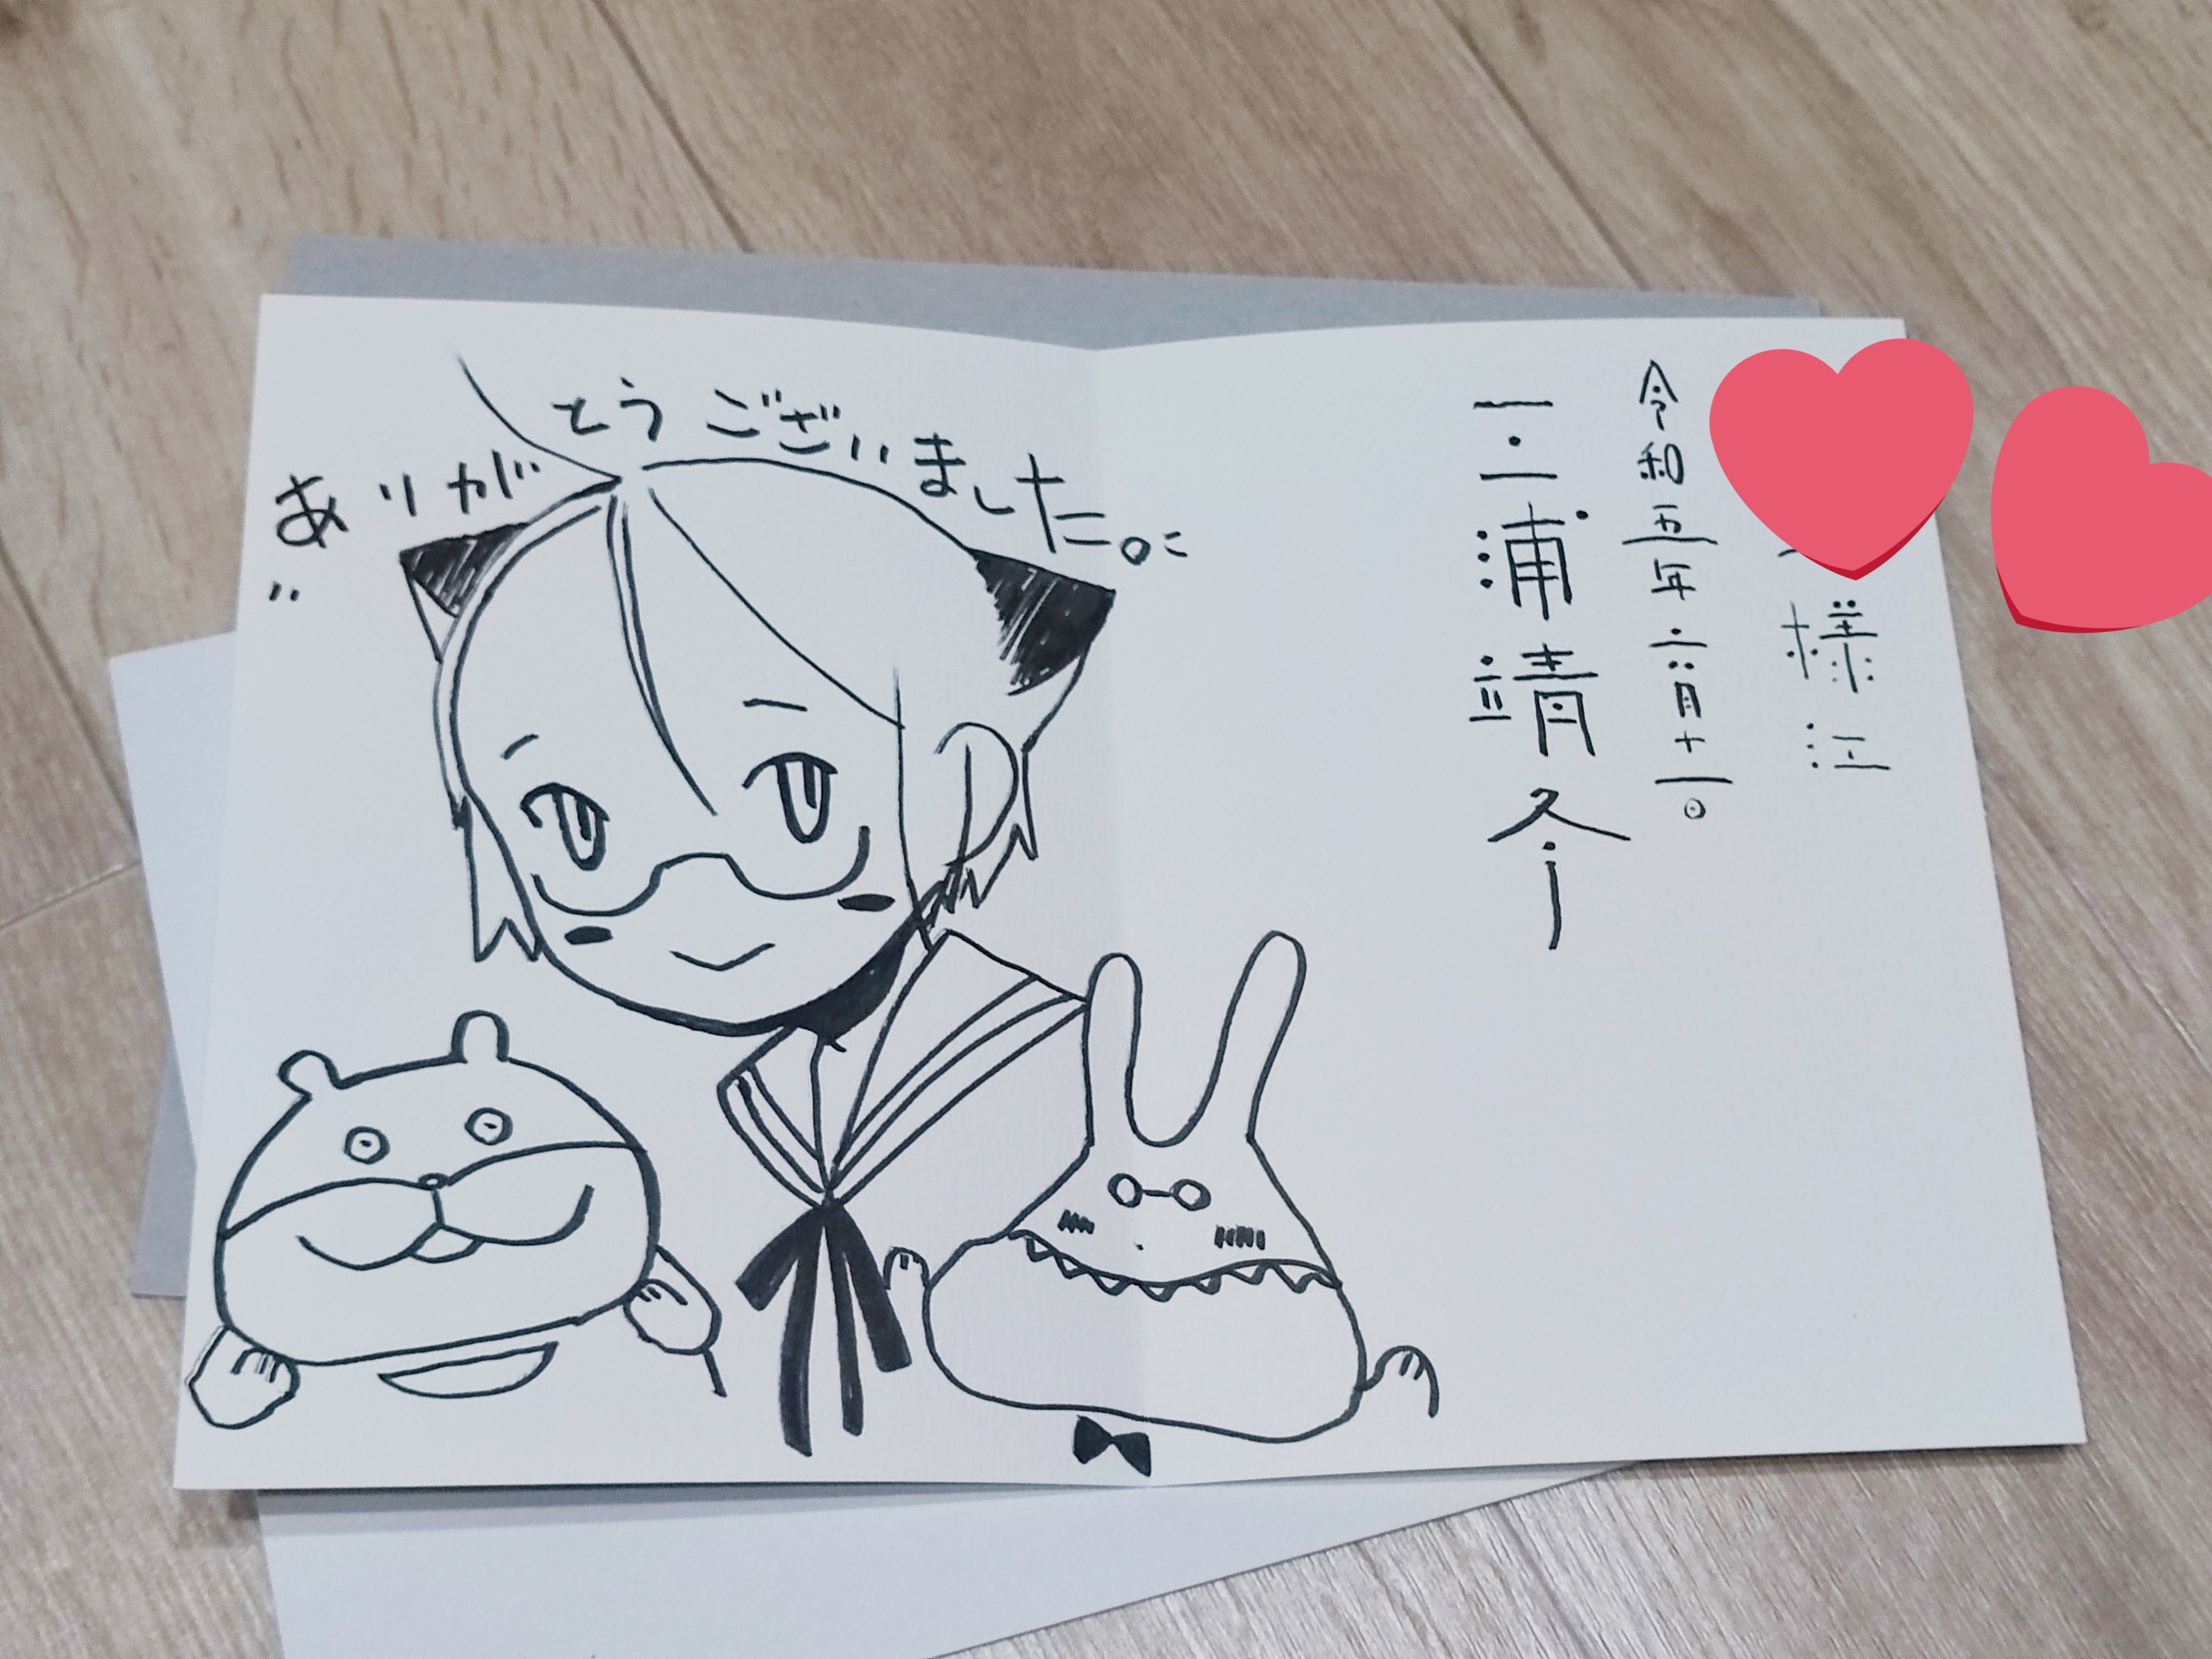 ありがとうございました。
様江
令和五年六月十一日
三浦靖介